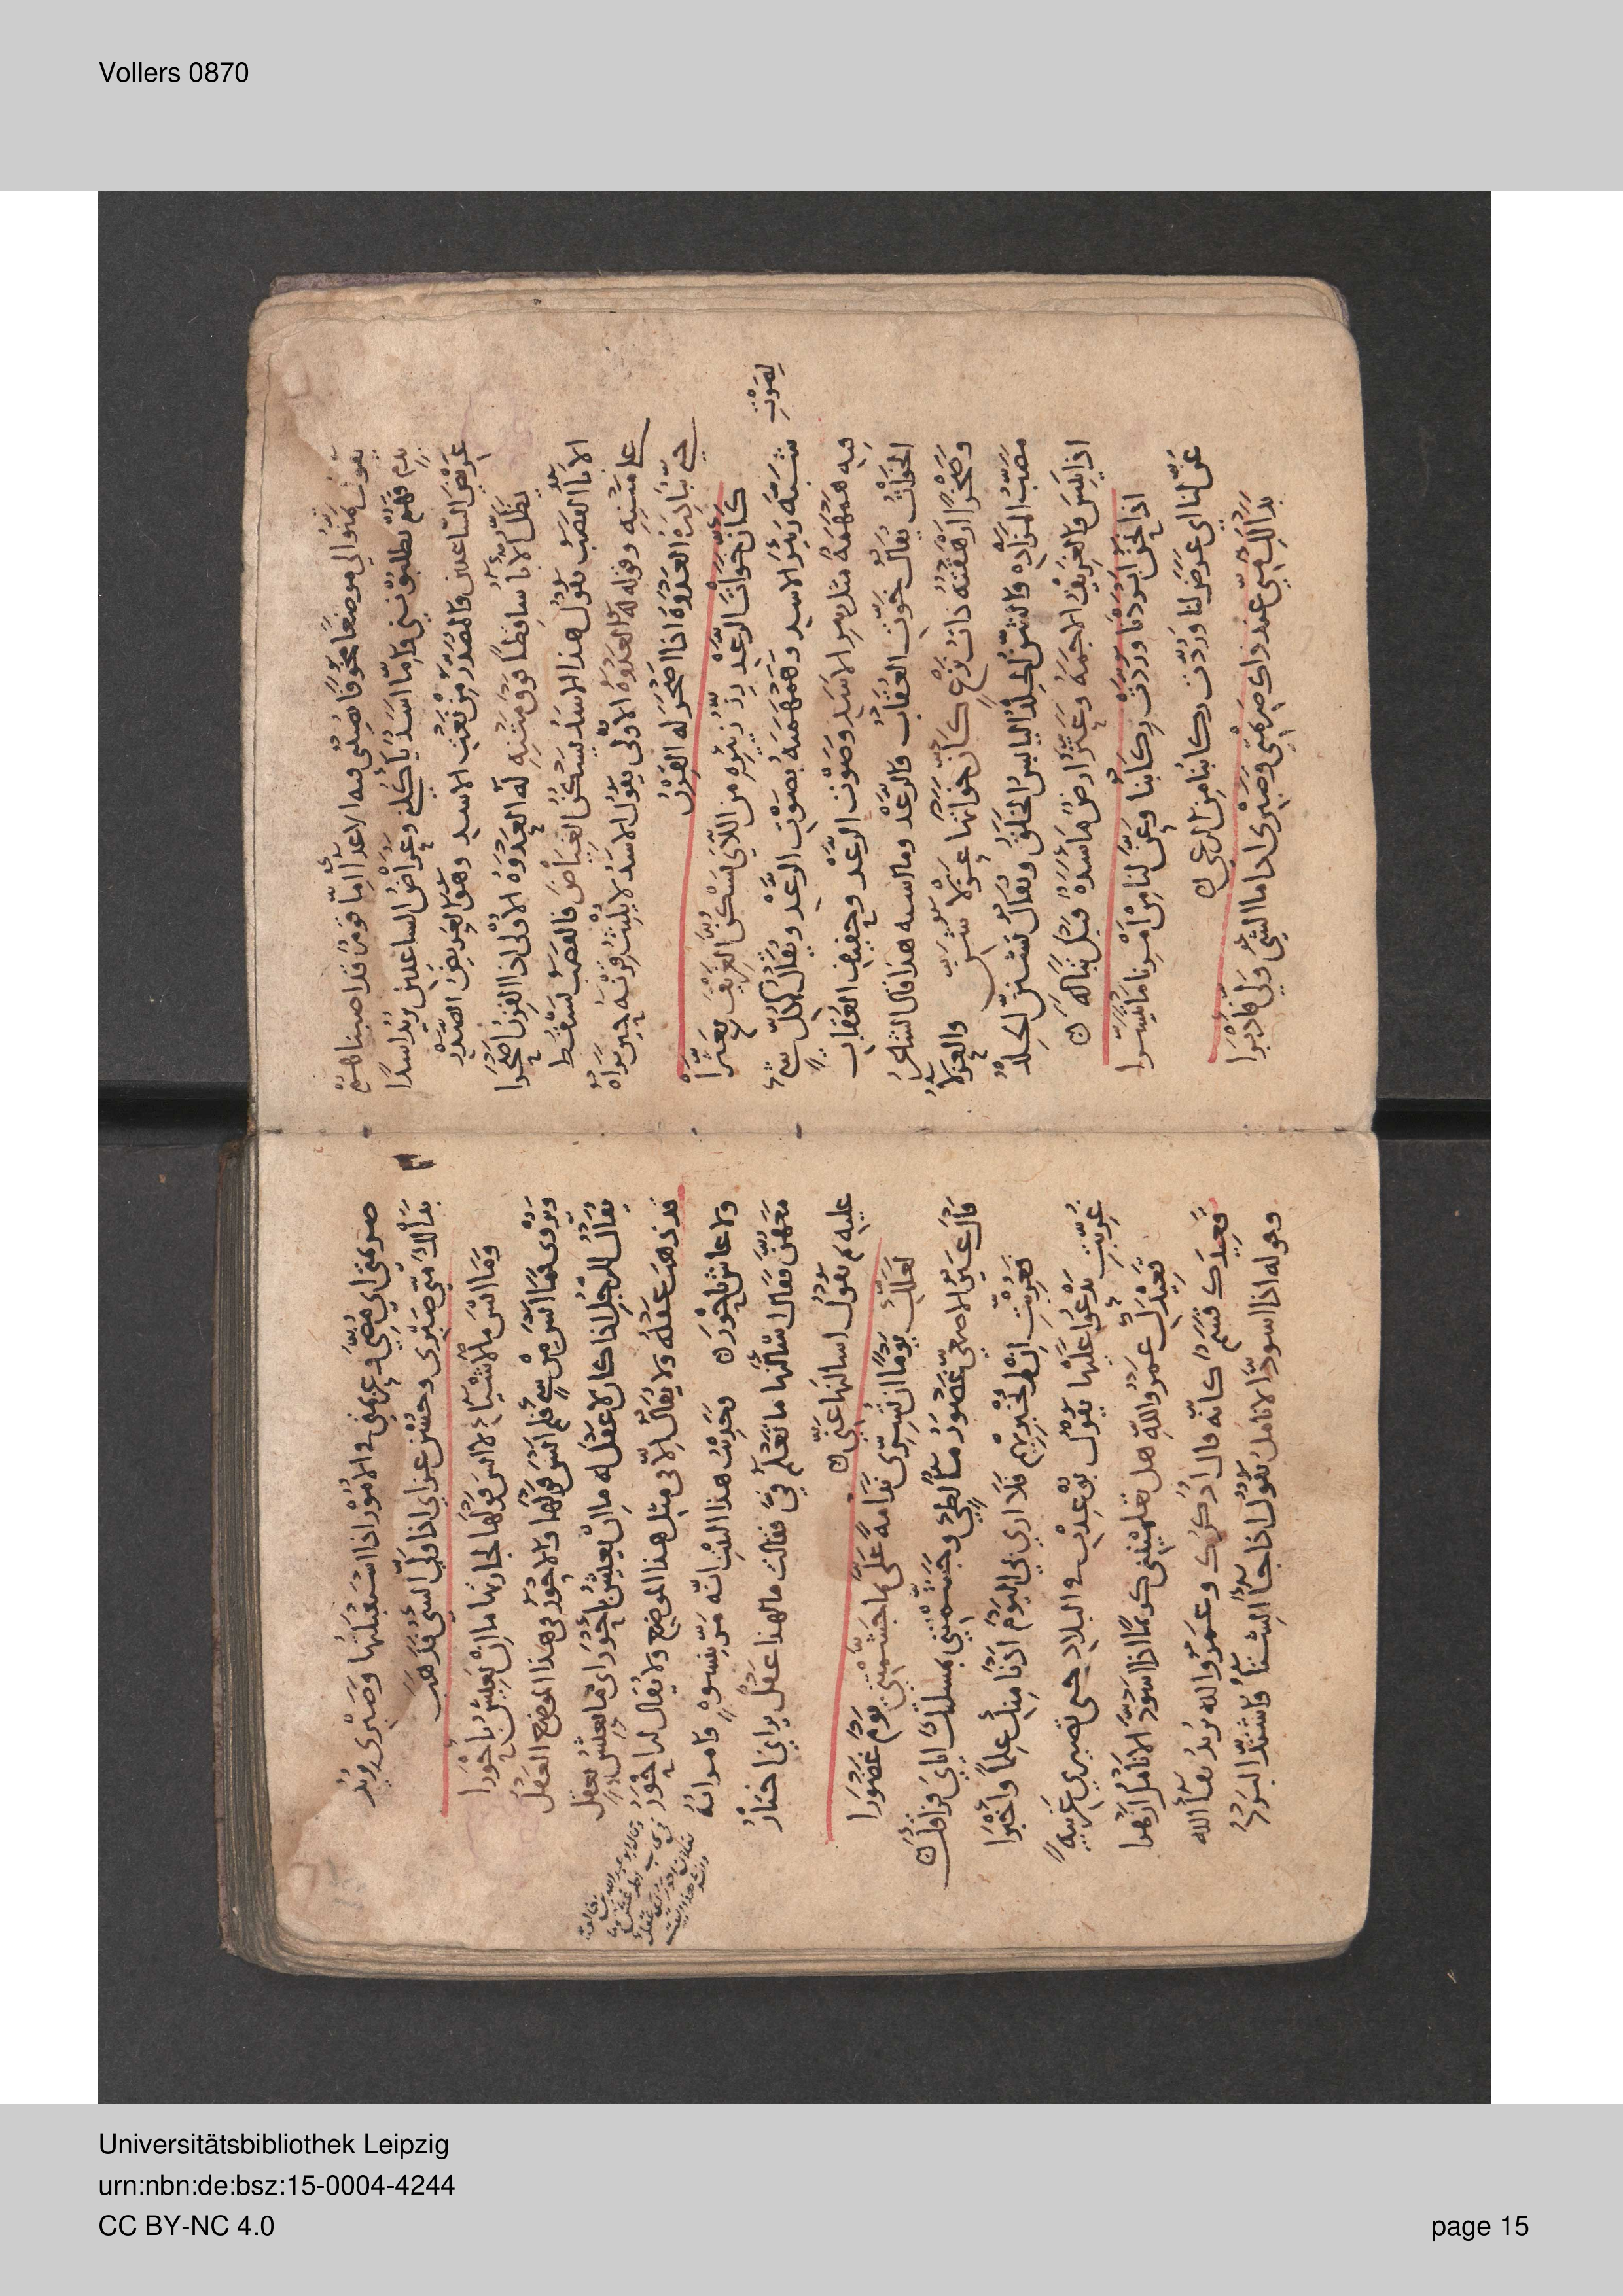 Vollers 0870
يقول موضعا مخوفا يصلي فيه الاعدا اما قوم قد اصبنا منهم
بدم فهم يطلبونني واما اسد ياكلني وعراض الساعدين يريد اسدا
عريض الساعدين والمصدر من نعت الاسد وهو العريض الصدر
يظل الابا ساقطا فوق متنه له العدوة الاولى اذا القرن اصحرا
الابا القصب يقول هذا الاسد يسكن الغياض فالقصب يسقط
على متنه وقوله له العدوة الاولى يقول الاسد لا يلبث قرنه حين يراه
حتى يبادره العدوة اذا اصحر له القرن
كأن خوات الرعد رز زئيره من اللاي يسكن الغريف بعثرا
شبه زئير الاسد وهمهمته بصوت الرعد ويقال لكل شيء لصوت
فيه همهمة مثل الاسد وصوت الرعد وحفيف العقاب
الخوات يقال خوت العقاب والرعد وما اشبه هذا قال الشاعر
وصخرا ارهقته ذات فرغ كأن خواتها عزلا شن والعزلا
مصب المزادة والشن الجلد اليابس الخلق ويقال تشنن الجلد
اذا يبس والغريف الاجمة وعثر ارض ماسدة قبل تبالة
اذا نحن ابردنا وردت ركابنا وعن لنا من امرنا ما تيسرا
عن لنا اي عرض لنا وردت ركابنا من الرعي
بدا لك مني عند ذاك صريمتي وصبري اذا ما الشي ولى فادبرا
صريمتي اي مضيي وعزيمتي في الامور اذا استقبلتها وصبري يريد
بدا لك مني صبري وحسن عزاي اذا ولي الشي فذهب
وما انس ملاشياء لا انس قولها لجارتها ما ان يعيش باحورا
ويروى فما انس من شي فلم انس قولها والاحور في هذا الموضع العقل
يقال للرجل اذا كان لا عقل له ما ان يعيش باحور اي ما يعيش بعقل
قد ذهب عقله ولا يقال الا في مثل هذا الموضع ولا يقال له احور
ولا عاش باحور وحديث هذا البيت انه مر بنسوة وامراته
معهن فقال اسالنها ما تعلم في فقالت ما لهذا عقل اختار
عليه يقول اسالنها عني
لعلك يوما ان تسري ندامة علي بما جشمتني يوم غضورا
قال غير الاصمعي غضور ما لطيء وجشمتني بمسلتك اياي فراقك
فغربت ان لم تخبريهم فلا ارى لي اليوم ادنى منك علما واخبرا
غربت يدعوا عليها يقول بوعدت في البلاد حتى تصيري غريبة
قعيدك عمر الله هل تعلمينني كريما اذا اسود الانامل ازهرا
قعيدك قسم كانه قال اذكرك وعمر الله يريد بقا الله
وقوله اذا اسود الانامل يقول اذا جا الشتا واشتد البرد
Universitätsbibliothek Leipzig
urn:nbn:de:bsz:15-0004-4244
CC BY-NC 4.0
page 15